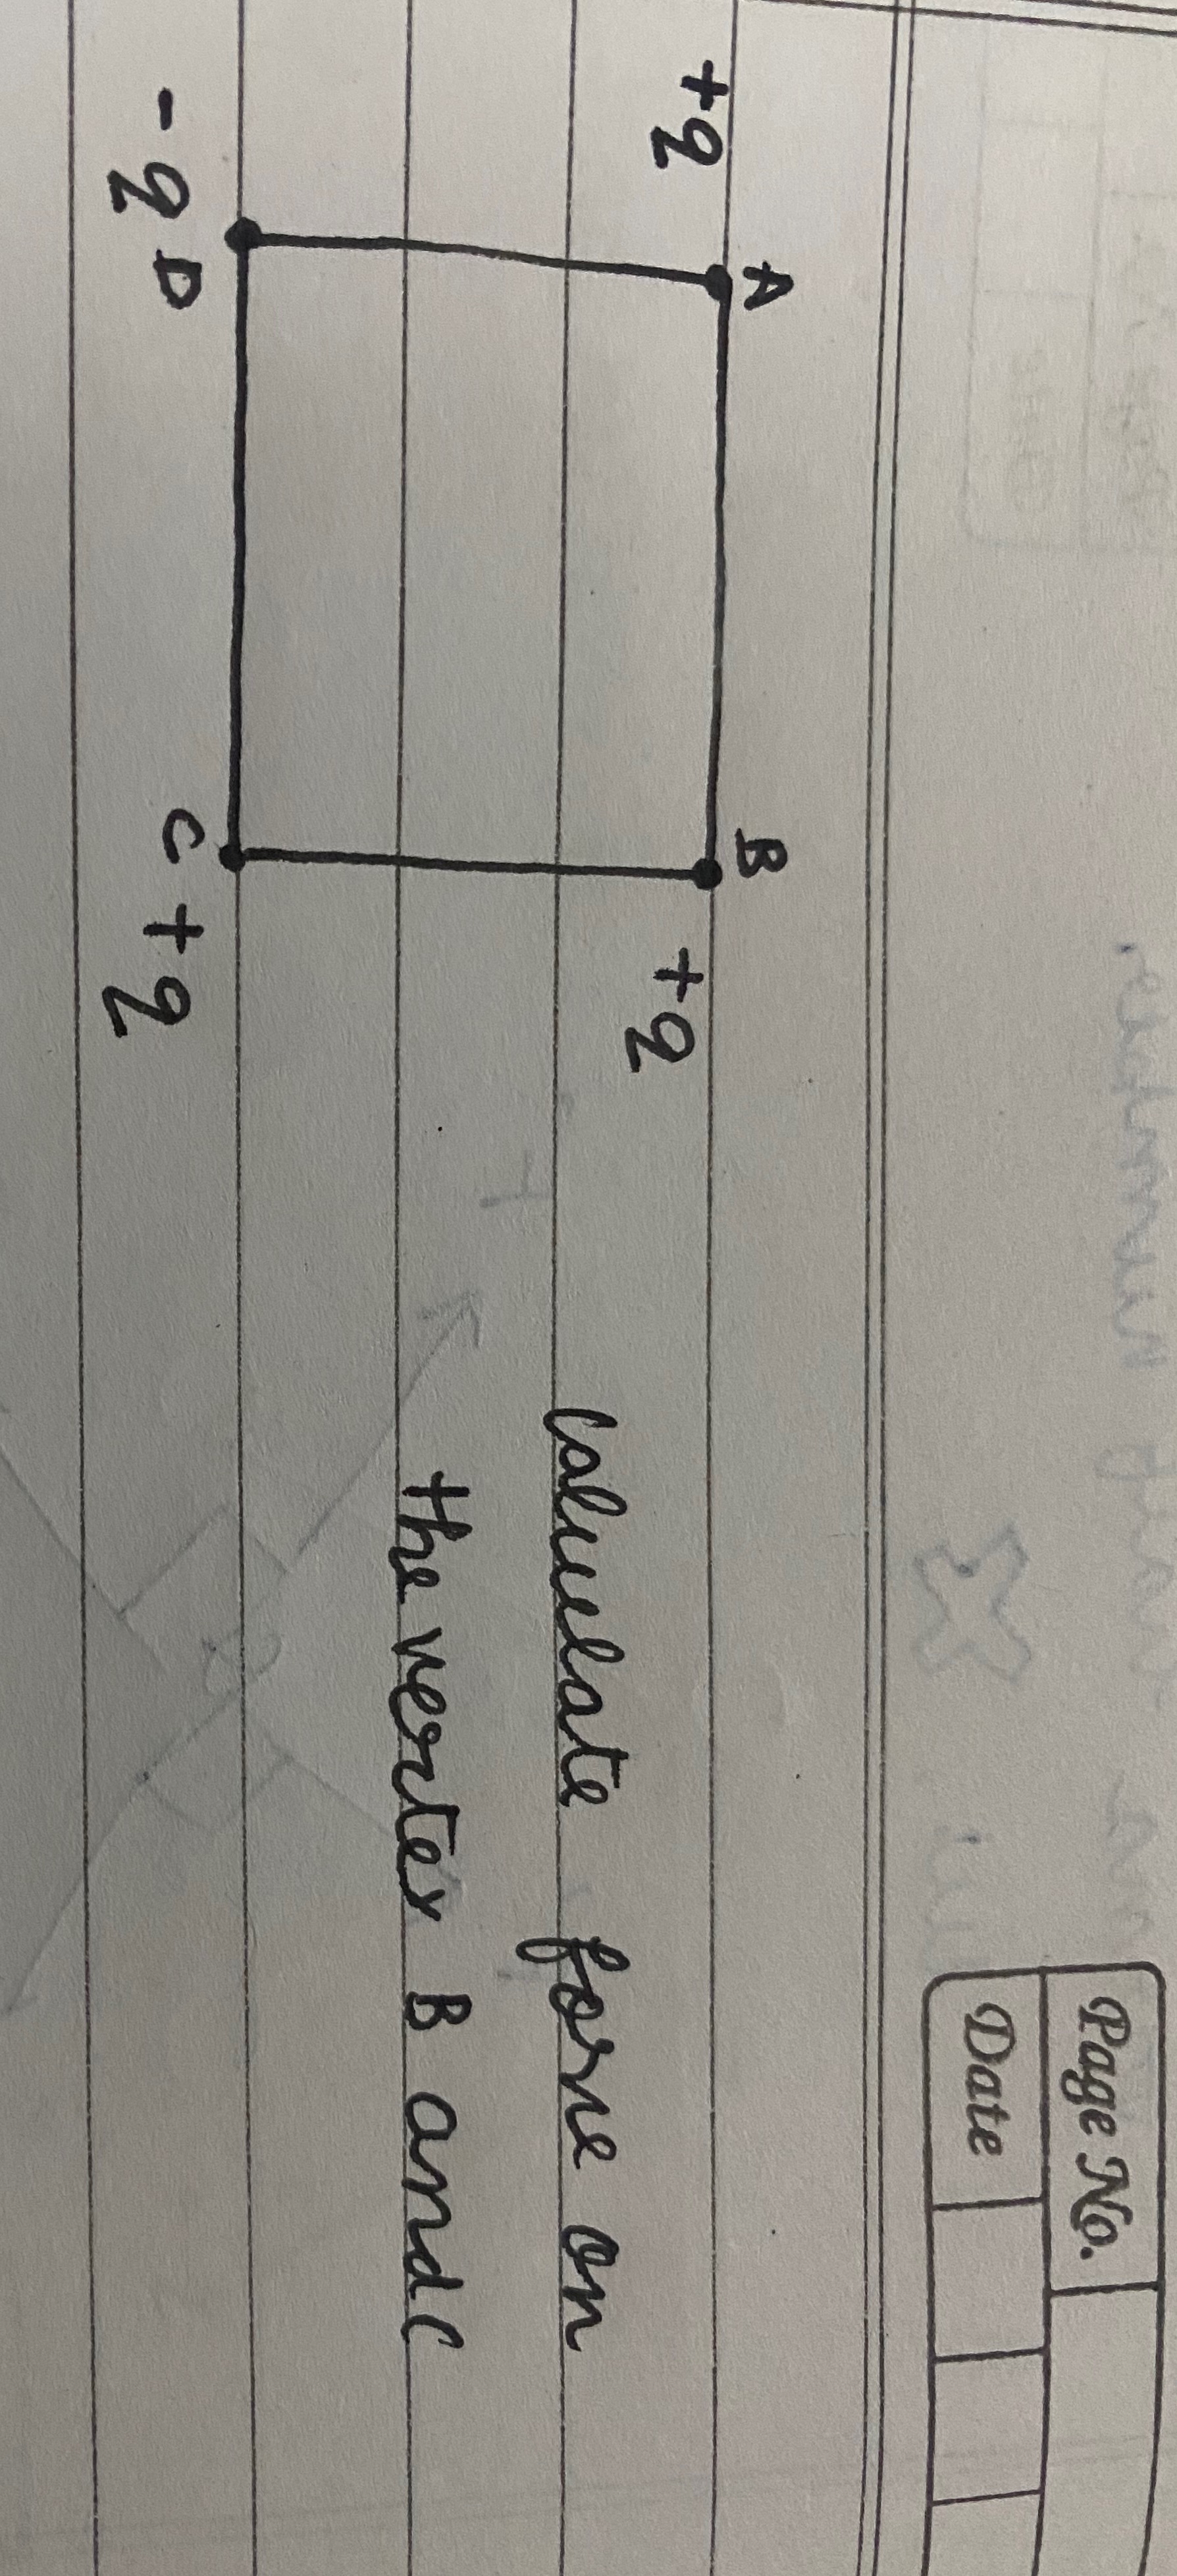 Page No.
Date
A
B
+q
+q
Calculate force on
the vertex B and C
-q
D
C
+q